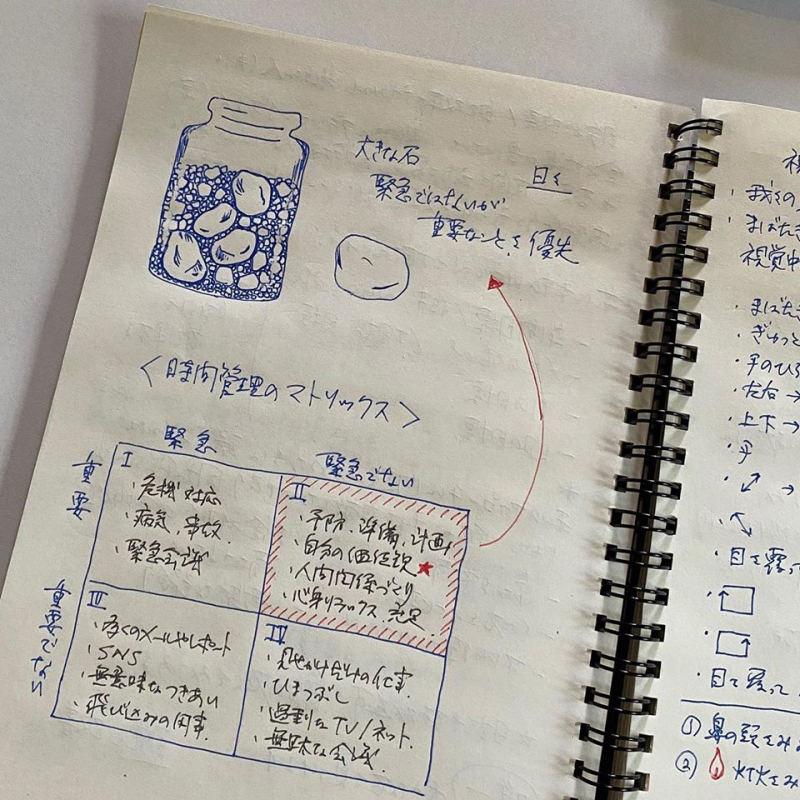 大きな石
緊急ではないが
重要なことを優先
曰く
<時間管理のマトリックス>
緊急
緊急でない
重要
重要でない
I
・危機対応
・病気、事故
・緊急会議
II
・予防、準備、計画
・自分の価値観★
・人間関係づくり
・心身リラックス 充足
III
・多くのメールやレポート
・SNS
・無意味なつきあい
・飛び込みの用事
IV
・見せかけだけの仕事
・ひまつぶし
・過剰なTV/ネット
・無駄な会議
・我々の
・まばたき
視覚中
・まばた
・ぎゅっと
・手のひら
・左右→
・上下→
・目を覆って
・目を覆って
① 鼻の頭をみ
② 灯火をみ